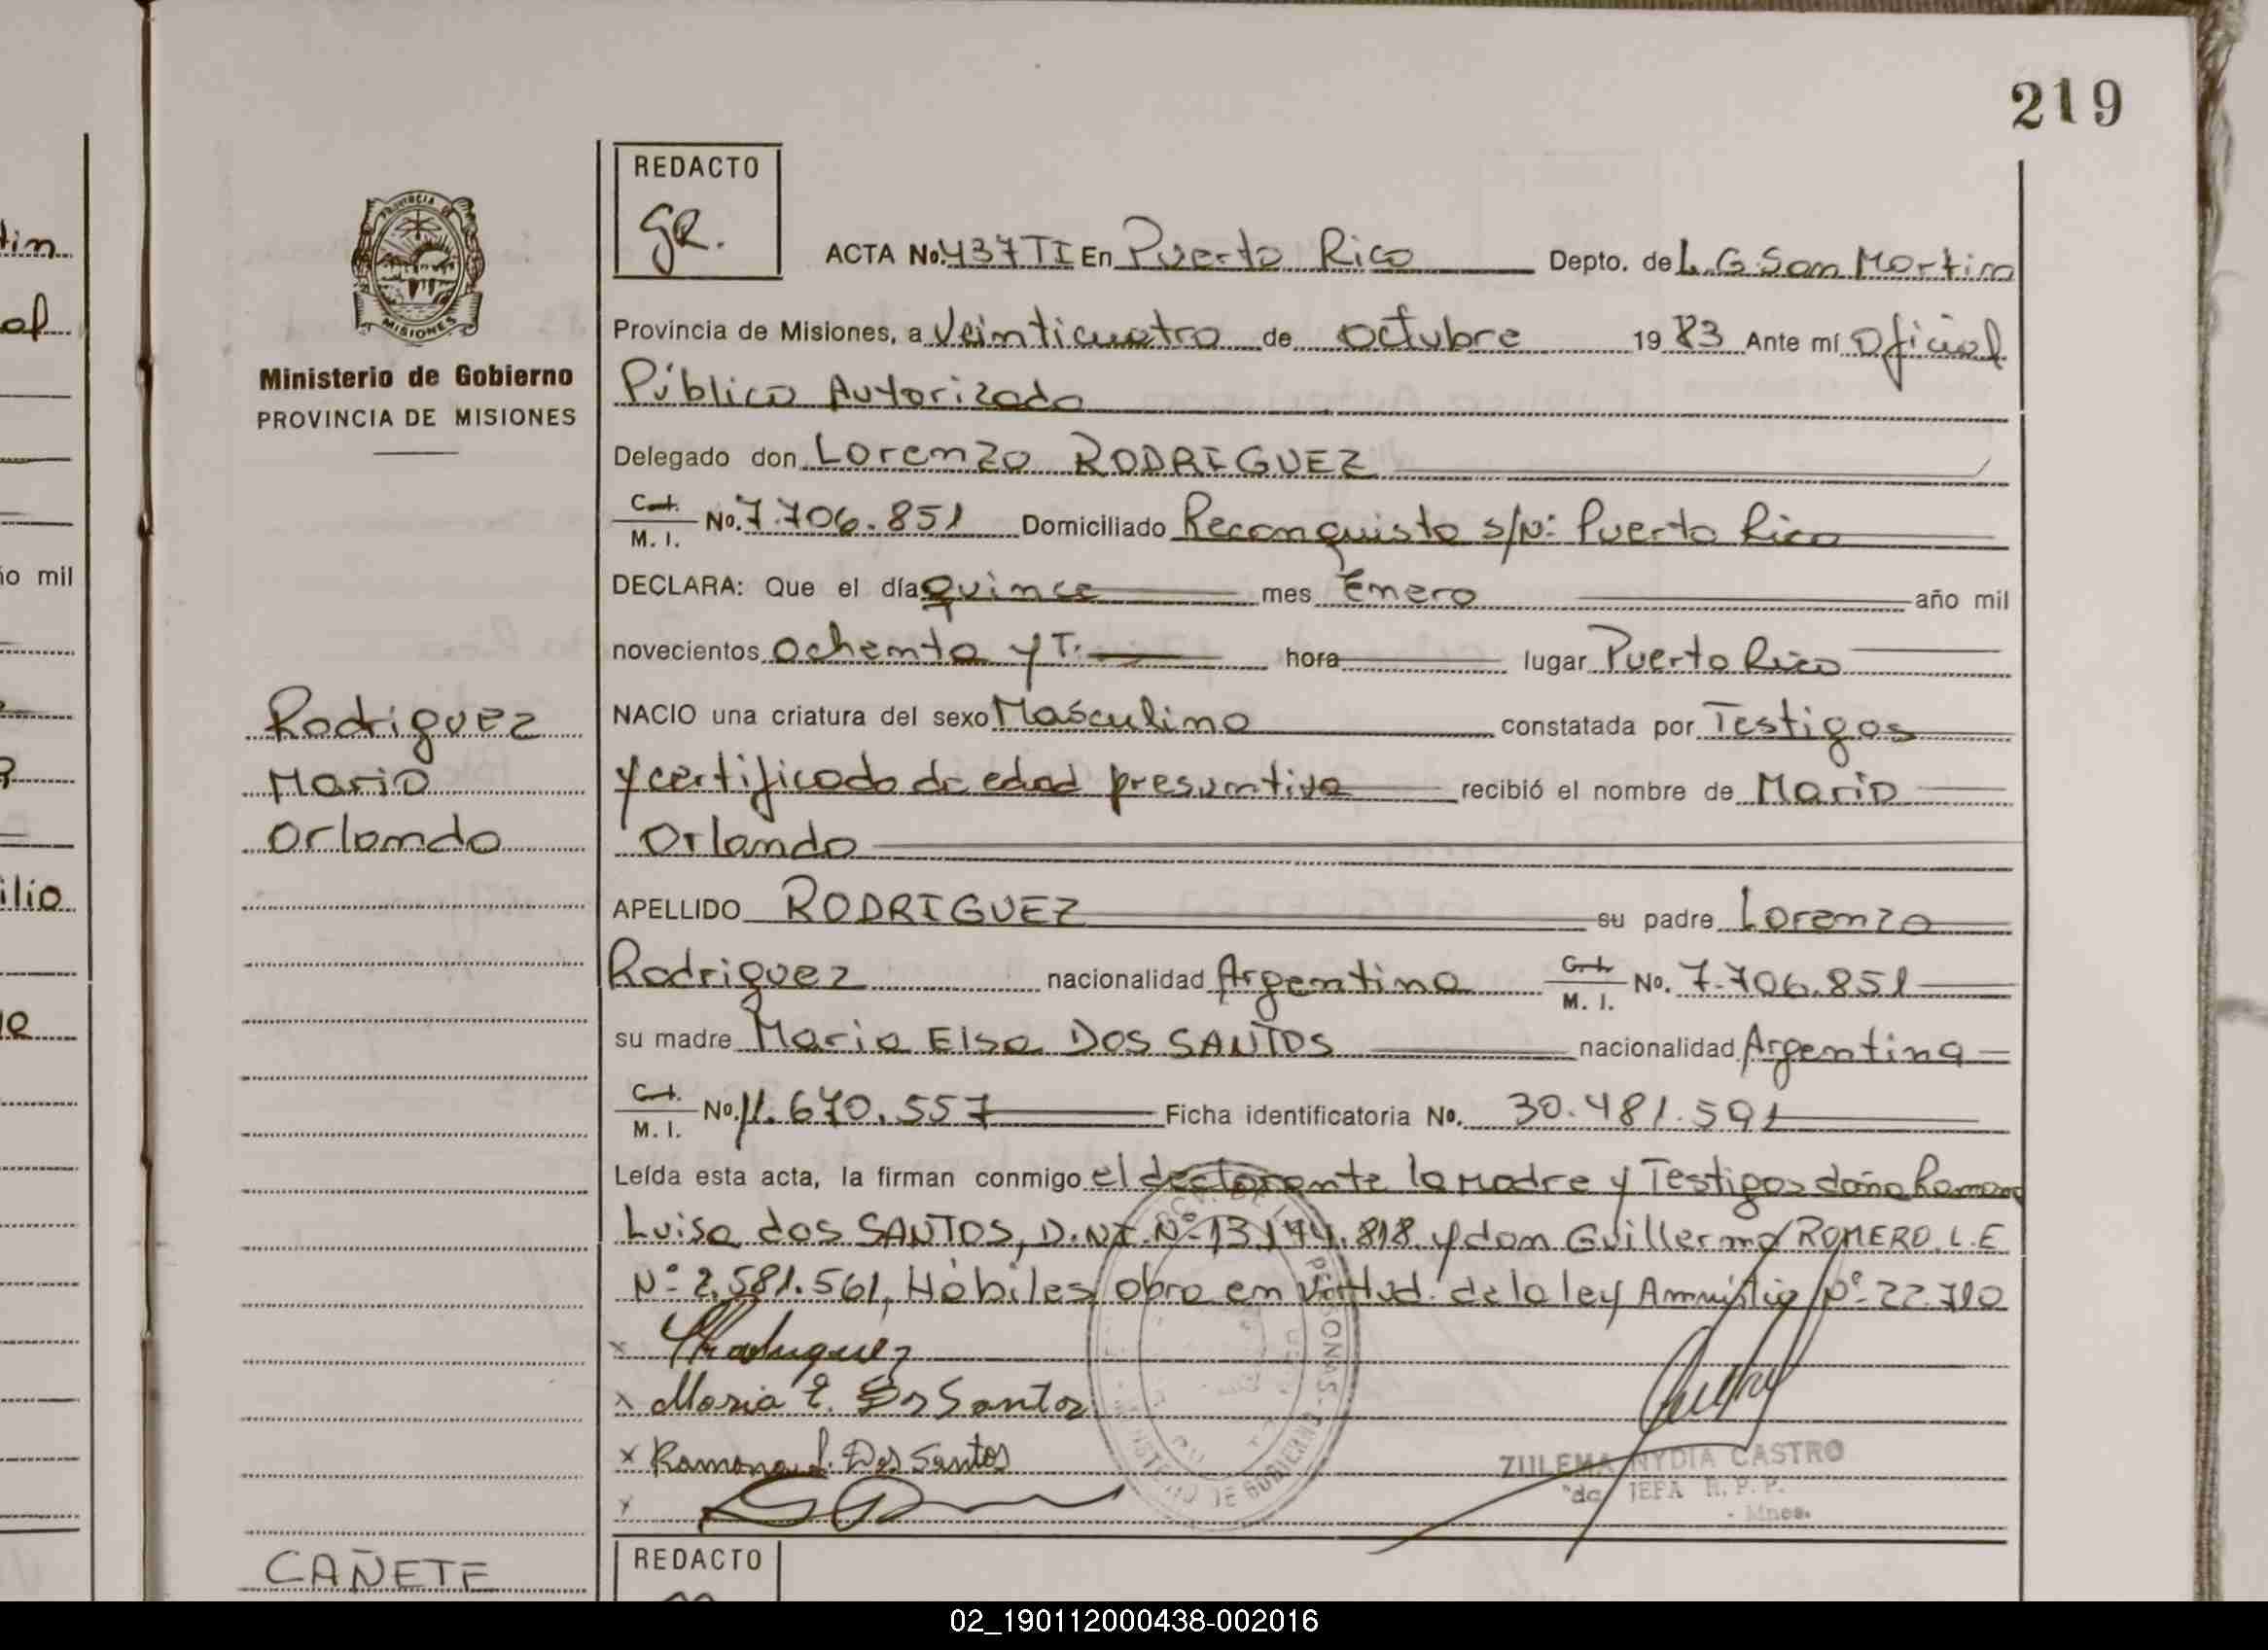 219
REDACTO
GR.
ACTA No. 437 TI En Puerto Rico Depto. de L. G. San Martin
Provincia de Misiones, a Veinticuatro de octubre 1983 Ante mí Oficial
Público Autorizado
Delegado don Lorenzo RODRIGUEZ
M. I. No. 7.706.851 Domiciliado Reconquista s/Nº Puerto Rico
DECLARA: Que el día quince mes Enero año mil
novecientos ochenta y T. hora lugar Puerto Rico
NACIO una criatura del sexo Masculino constatada por Testigos
y certificado de edad presuntiva recibió el nombre de Mario
Orlando
APELLIDO RODRIGUEZ su padre Lorenzo
Rodriguez nacionalidad Argentina M. I. No. 7.706.851
su madre Maria Elsa DOS SANTOS nacionalidad Argentina
M. I. No. 11.670.557 Ficha identificatoria No. 30.481.591
Leída esta acta, la firman conmigo el declarante la Madre y Testigos doña Ramona
Luisa dos SANTOS, D.N.I. Nº 13.194.818 y don Guillermo ROMERO L.E
Nº 2.581.561, Hábiles, obra en virtud de la ley Amnistia Nº 22.710
x Rodriguez
x Maria E. Dos Santos
x Ramona L. Dos Santos
x
ZULEMA NYDIA CASTRO
JEFA R. P. P.
Mnes.
PERSONAS
MINISTERIO DE GOBIERNO
REDACTO
PROVINCIA
MISIONES
Ministerio de Gobierno
PROVINCIA DE MISIONES
Rodriguez
Mario
Orlando
CAÑETE
tin
al
ño mil
ilio
02_190112000438-002016